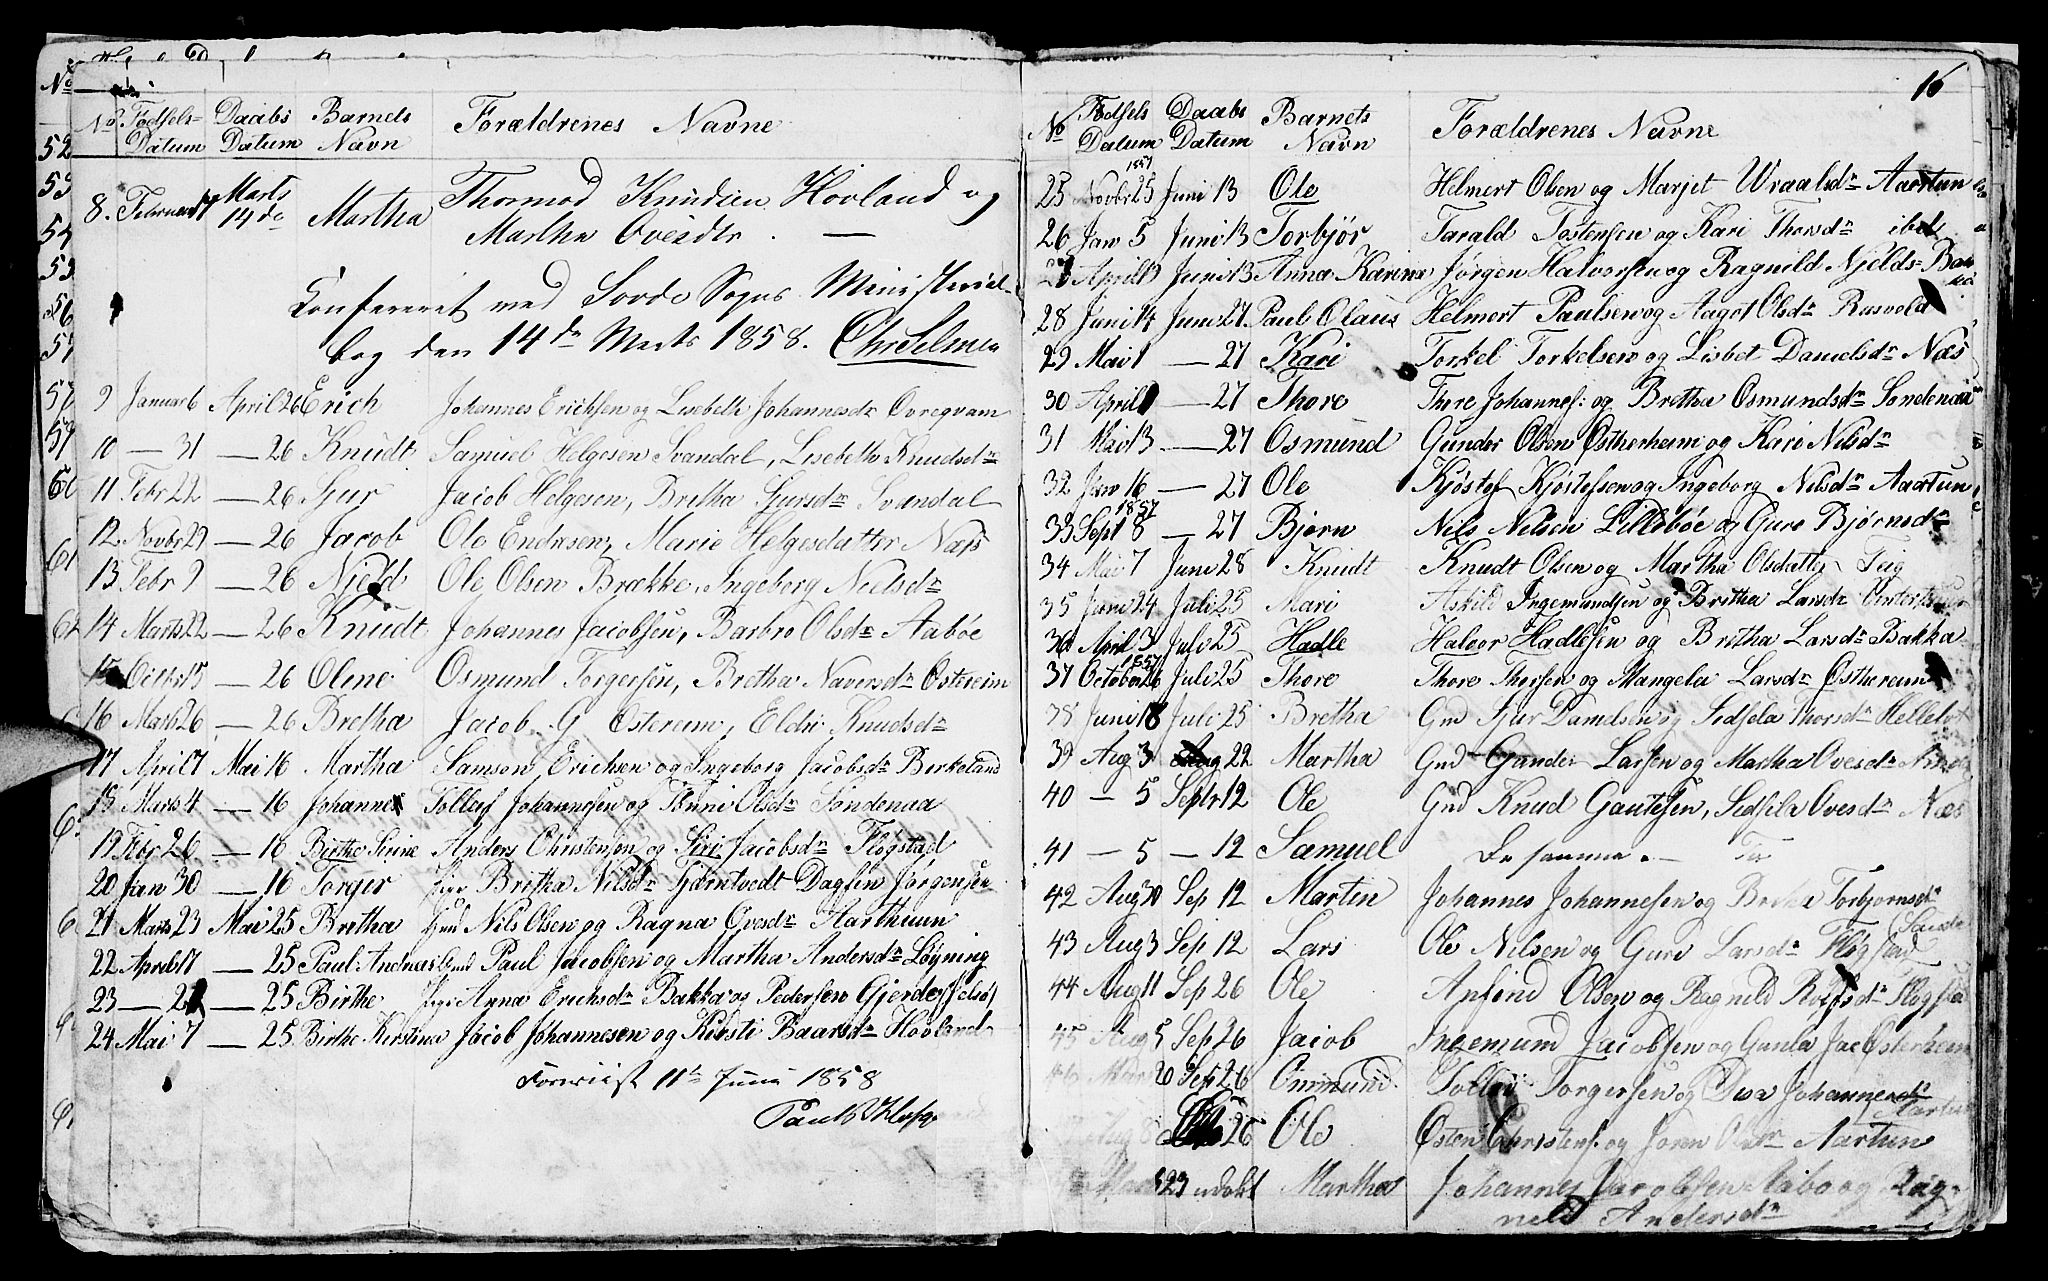 No
52
53
54
55
56
57
No Fødsels= Datum Daabs Datum Barnets Navn Forældrenes Navne
8. Februar 17 Marts 14de Martha Thormod Knudsen Hovland og
Martha Ovesdtr. —
Confereret med Sovde Sogns Ministerial-
bog den 14de Marts 1858.
9 Januar 6 April 26 Erich Johannes Erichsen og Lisebeth Johannesdr Øvregvam
10 — 31 — 26 Knudt Samuel Helgesen Svandal, Lisebeth Knudsdr
11 Febr 22 — 26 Sjur Jacob Helgesen, Bretha Sjursdr Svandal
12 Novbr 29 — 26 Jacob Ole Endresen, Marie Helgesdatter Næs
13 Febr 9 — 26 Njeld Ole Olsen Brække, Ingeborg Nielsdr
14 Marts 22 — 26 Knudt Johannes Jacobsen, Barbro Olsdr Aabøe
15 Octbr 15 — 26 Oline Osmund Torgersen, Bretha Naversdr Østereim
16 Marts 26 — 26 Bretha Jacob G Ostereim, Eldri Knudsdr
17 April 7 Mai 16 Martha Samson Erichsen og Ingeborg Jacobsdr Birkeland
18 Marts 4 — 16 Johannes Tollef Johannesen og Gunni Olsdr Søndenaa
19 Febr 26 — 16 Birthe Serine Anders Christensen og Siri Jacobsdr Fløgstad
20 Jan 30 — 16 Torger Pige Britha Nilsdr Tjørntvedt Dagfin Jørgensen
21 Marts 23 Mai 25 Bretha Gmd Nils Olsen og Ragna Ovesdr Aarthuun
22 April 17 — 25 Paul Andreas Gmd Paul Jacobsen og Martha Andersdr Løyning
23 — 21 — 25 Birthe Pige Anna Erichsdr Bakka og Pedersen Gjerde (Jelsø)
24 Mai 7 — 25 Birthe Kirstina Jacob Johannesen og Kirsti Baarsdr Hovland
Foreviist 11te Juni 1858
16
No Fødsels Datum Daabs Datum Barnets Navn Forældrenes Navne
25 Novbr 25 1857 Juni 13 Ole Helmert Olsen og Marjet Wraalsdr Aartun
26 Jan 5 Juni 13 Torbjør Tarald Tostensen og Kari Thorsdr ibd
27 April 13 Juni 13 Anna Karina Jørgen Halvorsen og Ragnild Njelds-
28 Juni 14 Juni 27 Paul Olaus Helmert Paulsen og Aagot Olsdr Rusvold
29 Mai 1 — 27 Kari Torkel Torkelsen og Lisbet Danielsdr Næs
30 April — 27 Thore Thore Johannes: og Bretha Osmundsdr Søndenaa
31 Mai 13 — 27 Osmund Gunder Olsen Østherheim og Kari Nilsdr
32 Jan 16 — 27 Ole Kjøstef Kjøstefsen og Ingeborg Nilsdr Aartun
33 Sept 8 1857 — 27 Bjørn Nils Nilsen Lillebøe og Guro Bjørnsdr
34 Mai 7 Juni 28 Knudt Knudt Olsen og Martha Olsdatter Teig
35 Juni 24 Juli 25 Mari Askild Ingemundsen og Britha Larsdr
36 April 3 Juli 25 Hadle Halvor Hadlesen og Britha Larsdr Bakka
37 October 26 1857 Juli 25 Thore Thore Thorsen og Mangela Larsdr Østhereim
38 Juni 18 Juli 25 Bretha Gmd Sjur Danielsen og Sidsela Thorsdr
39 Aug 3 Aug 22 Martha Gmd Gunder Larsen og Martha Ovesdr
40 — 5 Septr 12 Ole Gmd Knud Gautesen, Sidsila Ovesdr Næs
41 — 5 — 12 Samuel De samme. —
42 Aug 30 Sep 12 Martin Johannes Johannesen og Bretha Torbjørnsdr
(Sauda
43 Aug 3 Sep 12 Lars Ole Nilsen og Guri Larsdr Fløgstad
44 Aug 11 Sep 26 Ole Anfind Olsen og Ragnild Fløgsta
45 Aug 5 Sep 26 Jacob Ingemund Jacobsen og Gunla Jac Østerheim
46 Sep 26 Ommund Torgersen og Johannesdr
Aartun
Aug 8 26 Ole Østen Christens. og Joren Aartun
23 udøbt Martha Johannes Jacobsen Aabø og Rag-
nild Andersdr